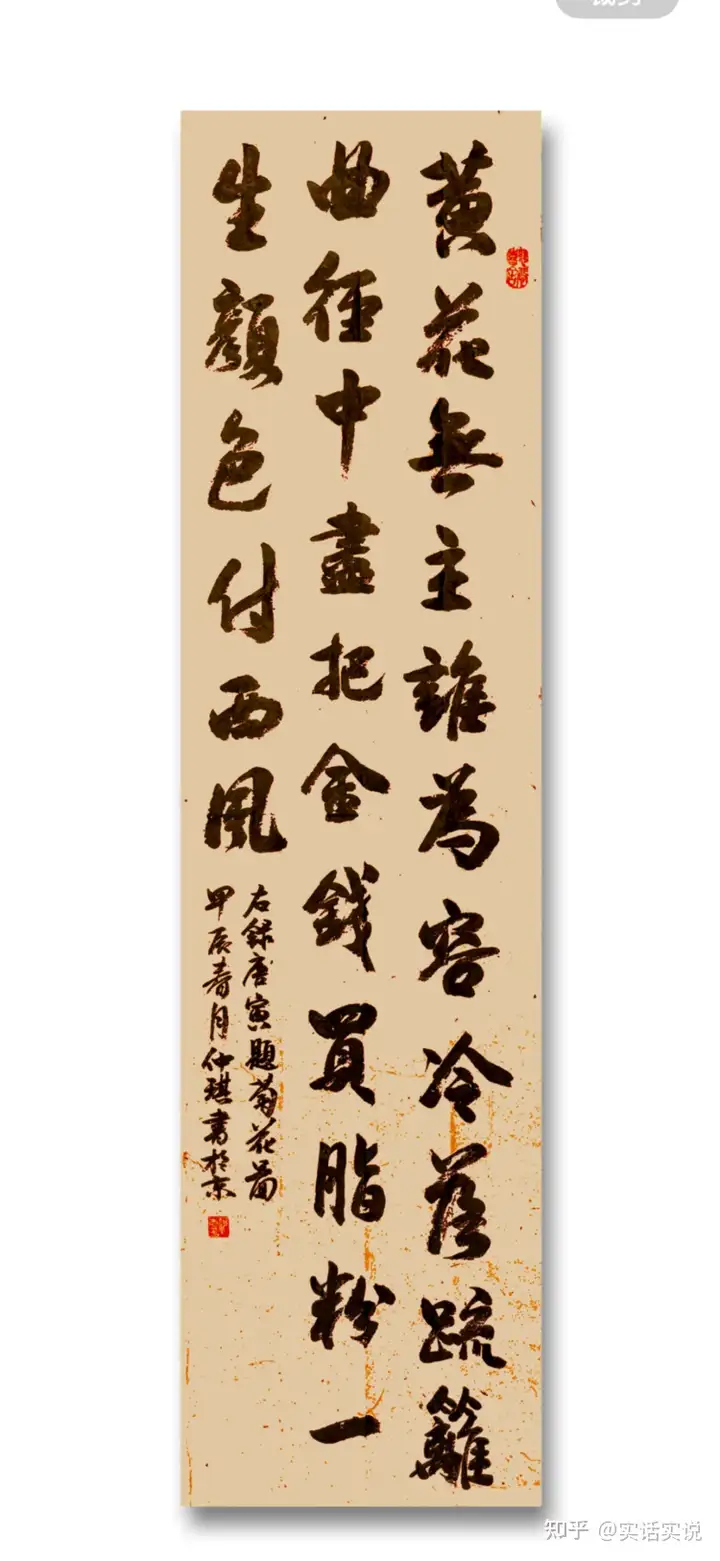 黄花無主誰為容冷落疏籬
曲徑中盡把金錢買脂粉一
生顏色付西風
右錄唐寅題菊花圖
甲辰春月仲琪書於京
知乎 @实话实说